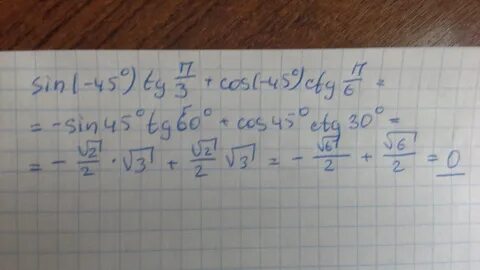 sin(-45°) tg π/3 + cos(-45°) ctg π/6 =
= -sin45° tg60° + cos45° ctg30° =
= - √2/2 · √3 + √2/2 √3 = - √6/2 + √6/2 = 0